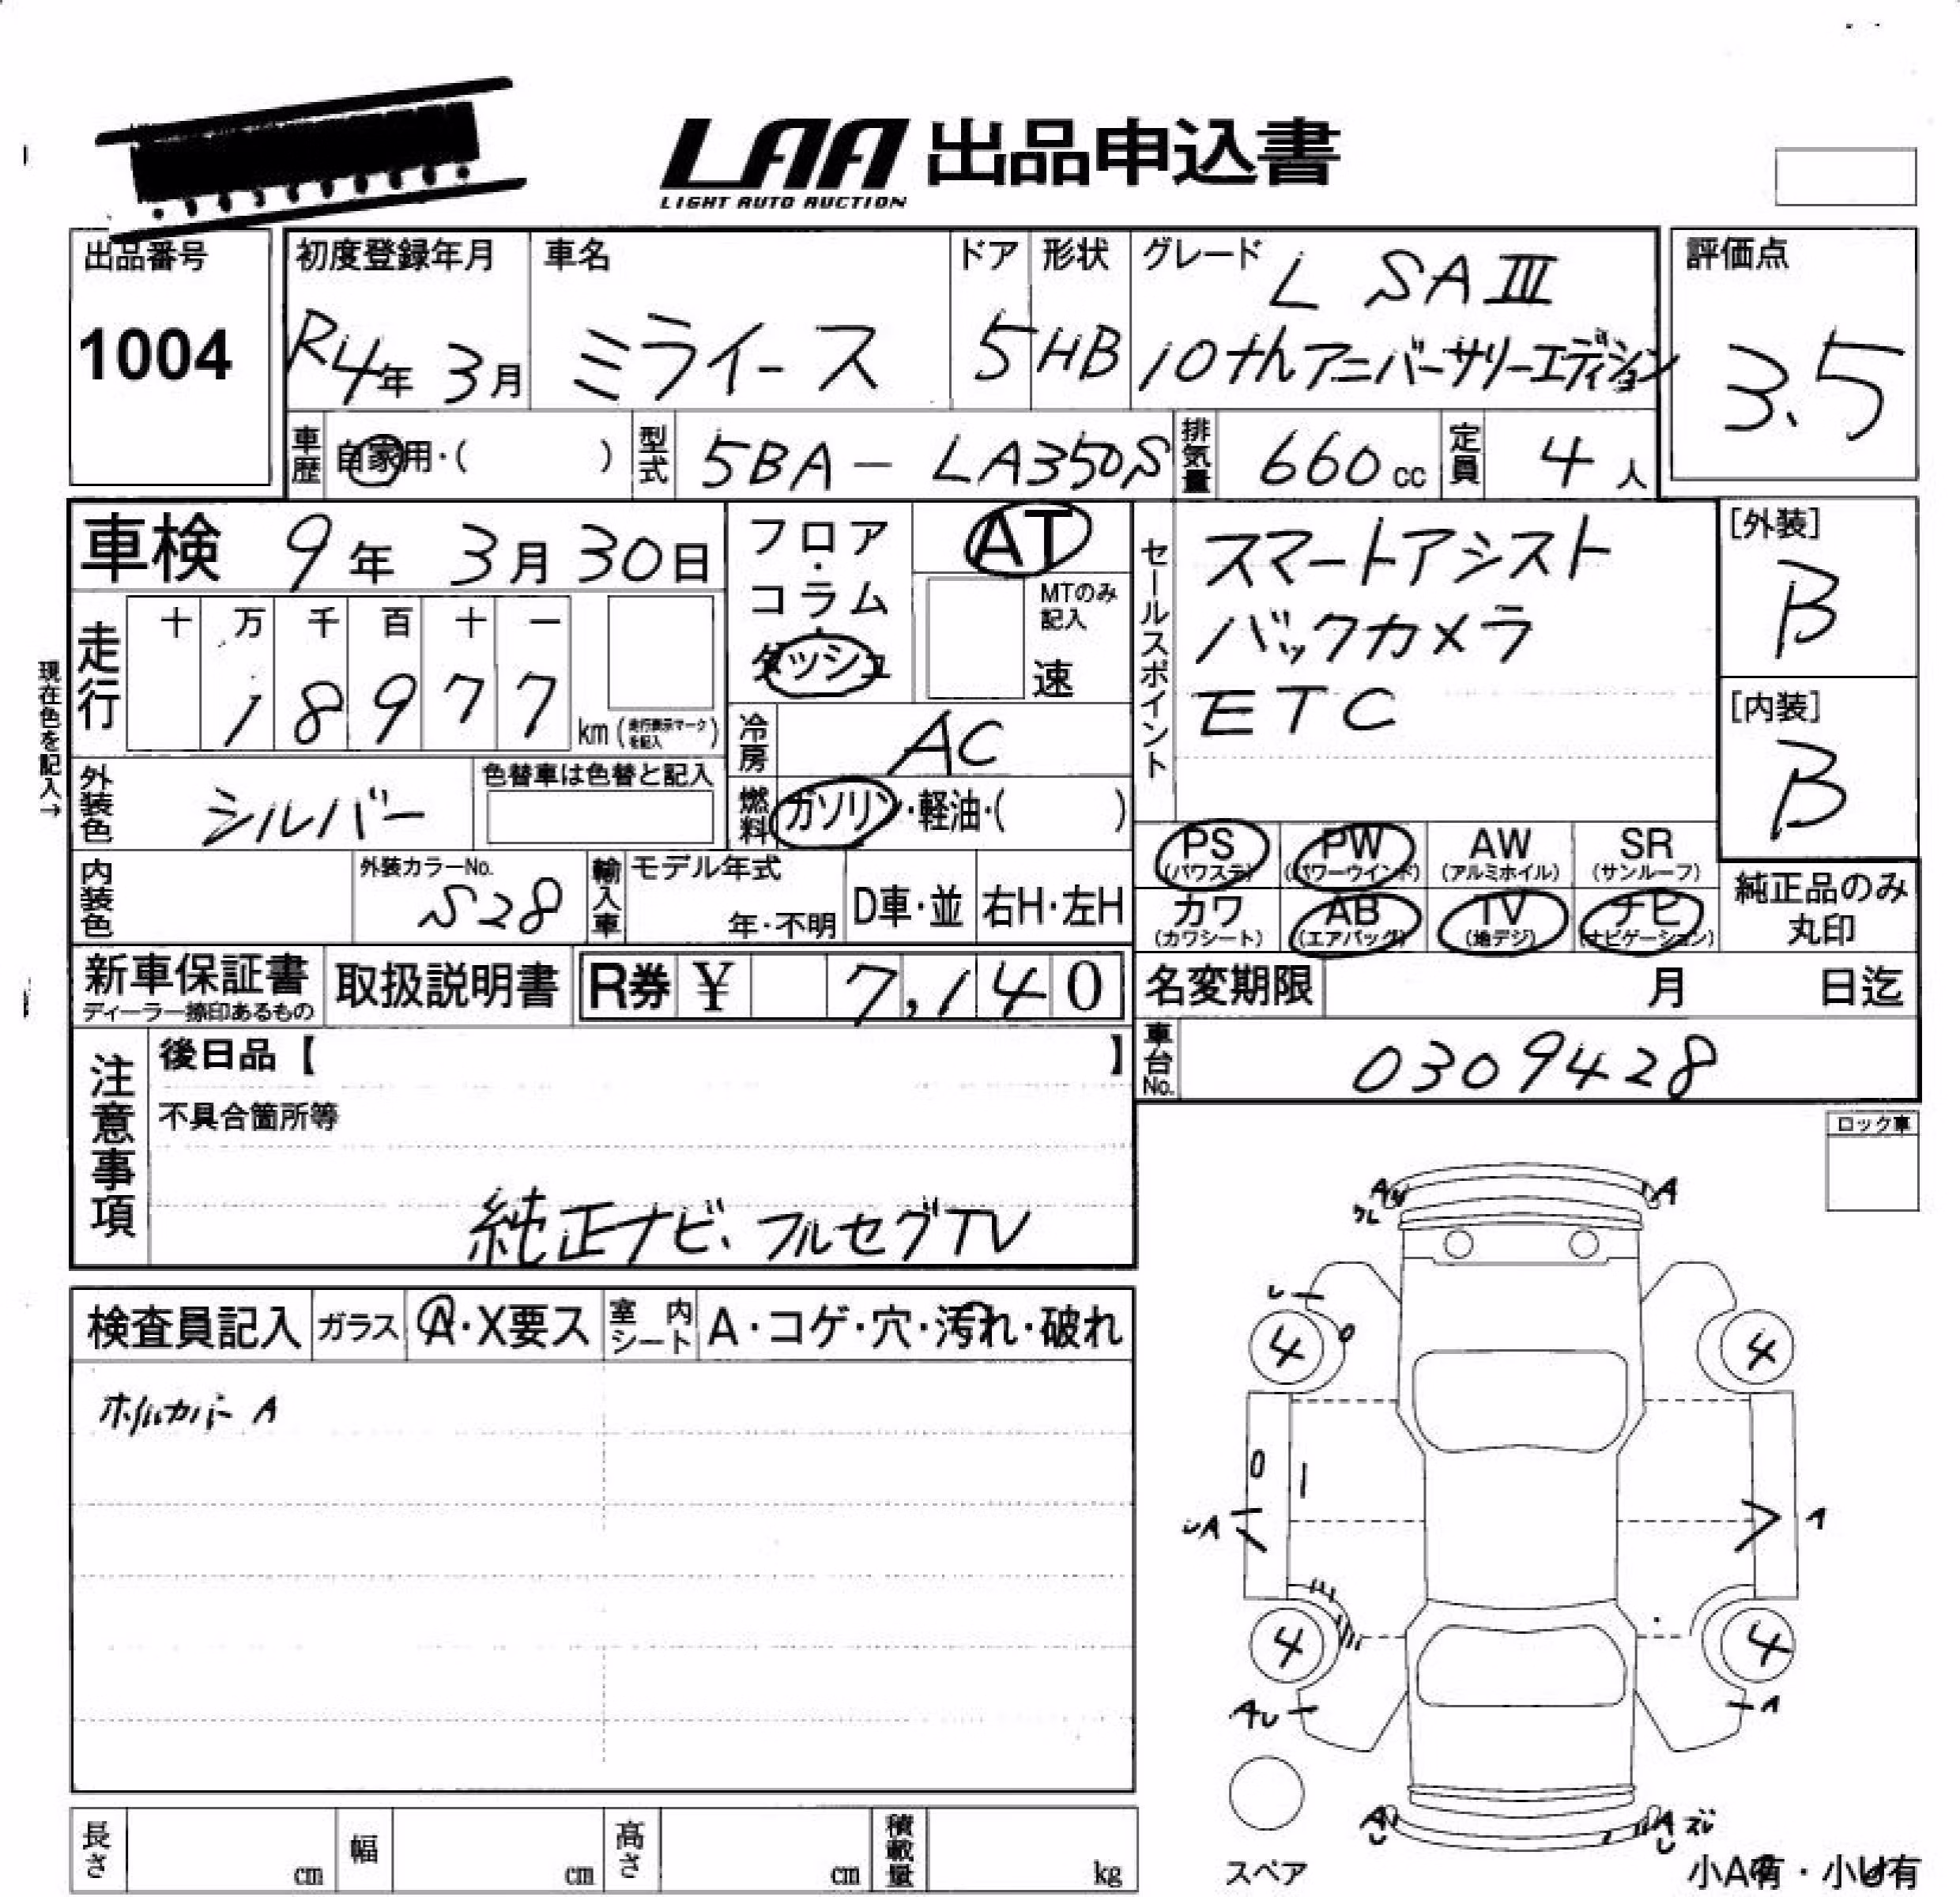 LAA 出品申込書
LIGHT AUTO AUCTION
出品番号
1004
初度登録年月
R4年 3月
車名
ミライース
ドア
5
形状
HB
グレード
L SAⅢ
10thアニバーサリーエディション
評価点
3.5
車歴 自家用・( )
型式 5BA - LA350S
排気量 660cc
定員 4人
車検 9年 3月30日
走行
十 万 千 百 十 一
1 8 9 7 7 km (走行表示マークを記入)
現在色を記入→
外装色 シルバー
色替車は色替と記入
内装色
外装カラーNo.
S28
輸入車
モデル年式
年・不明
D車・並
右H・左H
フロア・コラム・ダッシュ
AT
MTのみ記入
速
冷房 AC
燃料 ガソリン・軽油・( )
セールスポイント
スマートアシスト
バックカメラ
ETC
[外装]
B
[内装]
B
PS (パワステ)
PW (パワーウインド)
AW (アルミホイル)
SR (サンルーフ)
カワ (カワシート)
AB (エアバッグ)
TV (地デジ)
ナビ (ナビゲーション)
純正品のみ丸印
新車保証書
ディーラー捺印あるもの
取扱説明書
R券 ¥ 7,140
名変期限 月 日迄
車台No. 0309428
注意事項
後日品【 】
不具合箇所等
純正ナビ、フルセグTV
ロック車
検査員記入
ガラス A・X要ス
室内シート A・コゲ・穴・汚れ・破れ
ホイルカバー A
A
A
4
4
A
4
4
A
A
A
スペア
小A有・小U有
長さ cm
幅 cm
高さ cm
積載量 kg